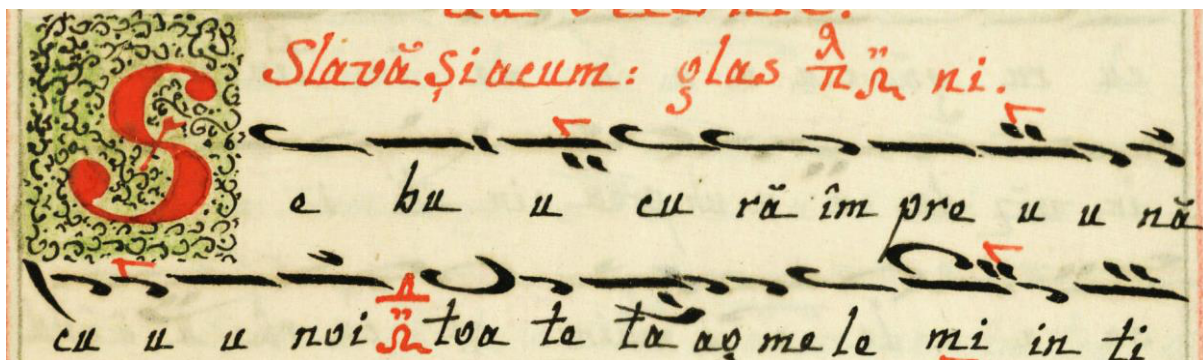 Slavă șiacum: glas π ni.
Se bu u cu ră îm pre u u nă
cu u u noi toa te ta ag me le mi in ti